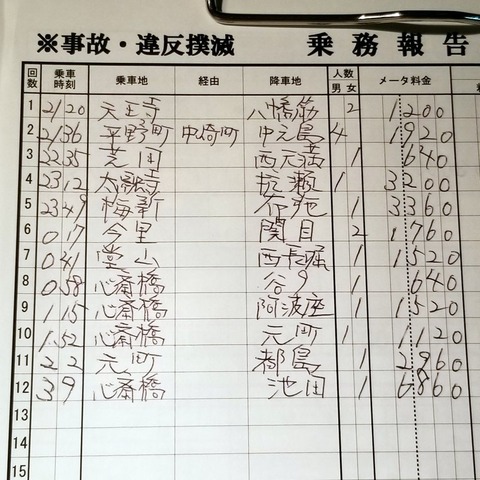 ※事故・違反撲滅 乗務報告
回数 乗車時刻 乗車地 経由 降車地 人数 男 女 メータ料金
1 21 20 天王寺 八幡筋 2 1200
2 21 36 平野町 中崎町 中之島 4 1920
3 22 35 芝田 西天満 1 640
4 23 12 太融寺 杭瀬 1 3200
5 23 49 梅新 1 3360
6 0 17 今里 関目 2 1760
7 0 41 堂山 西長堀 1 1520
8 0 58 心斎橋 谷9 1 640
9 1 15 心斎橋 阿波座 1 1520
10 1 52 心斎橋 元町 1 1120
11 2 2 元町 都島 1 2960
12 3 9 心斎橋 池田 1 6860
13
14
15